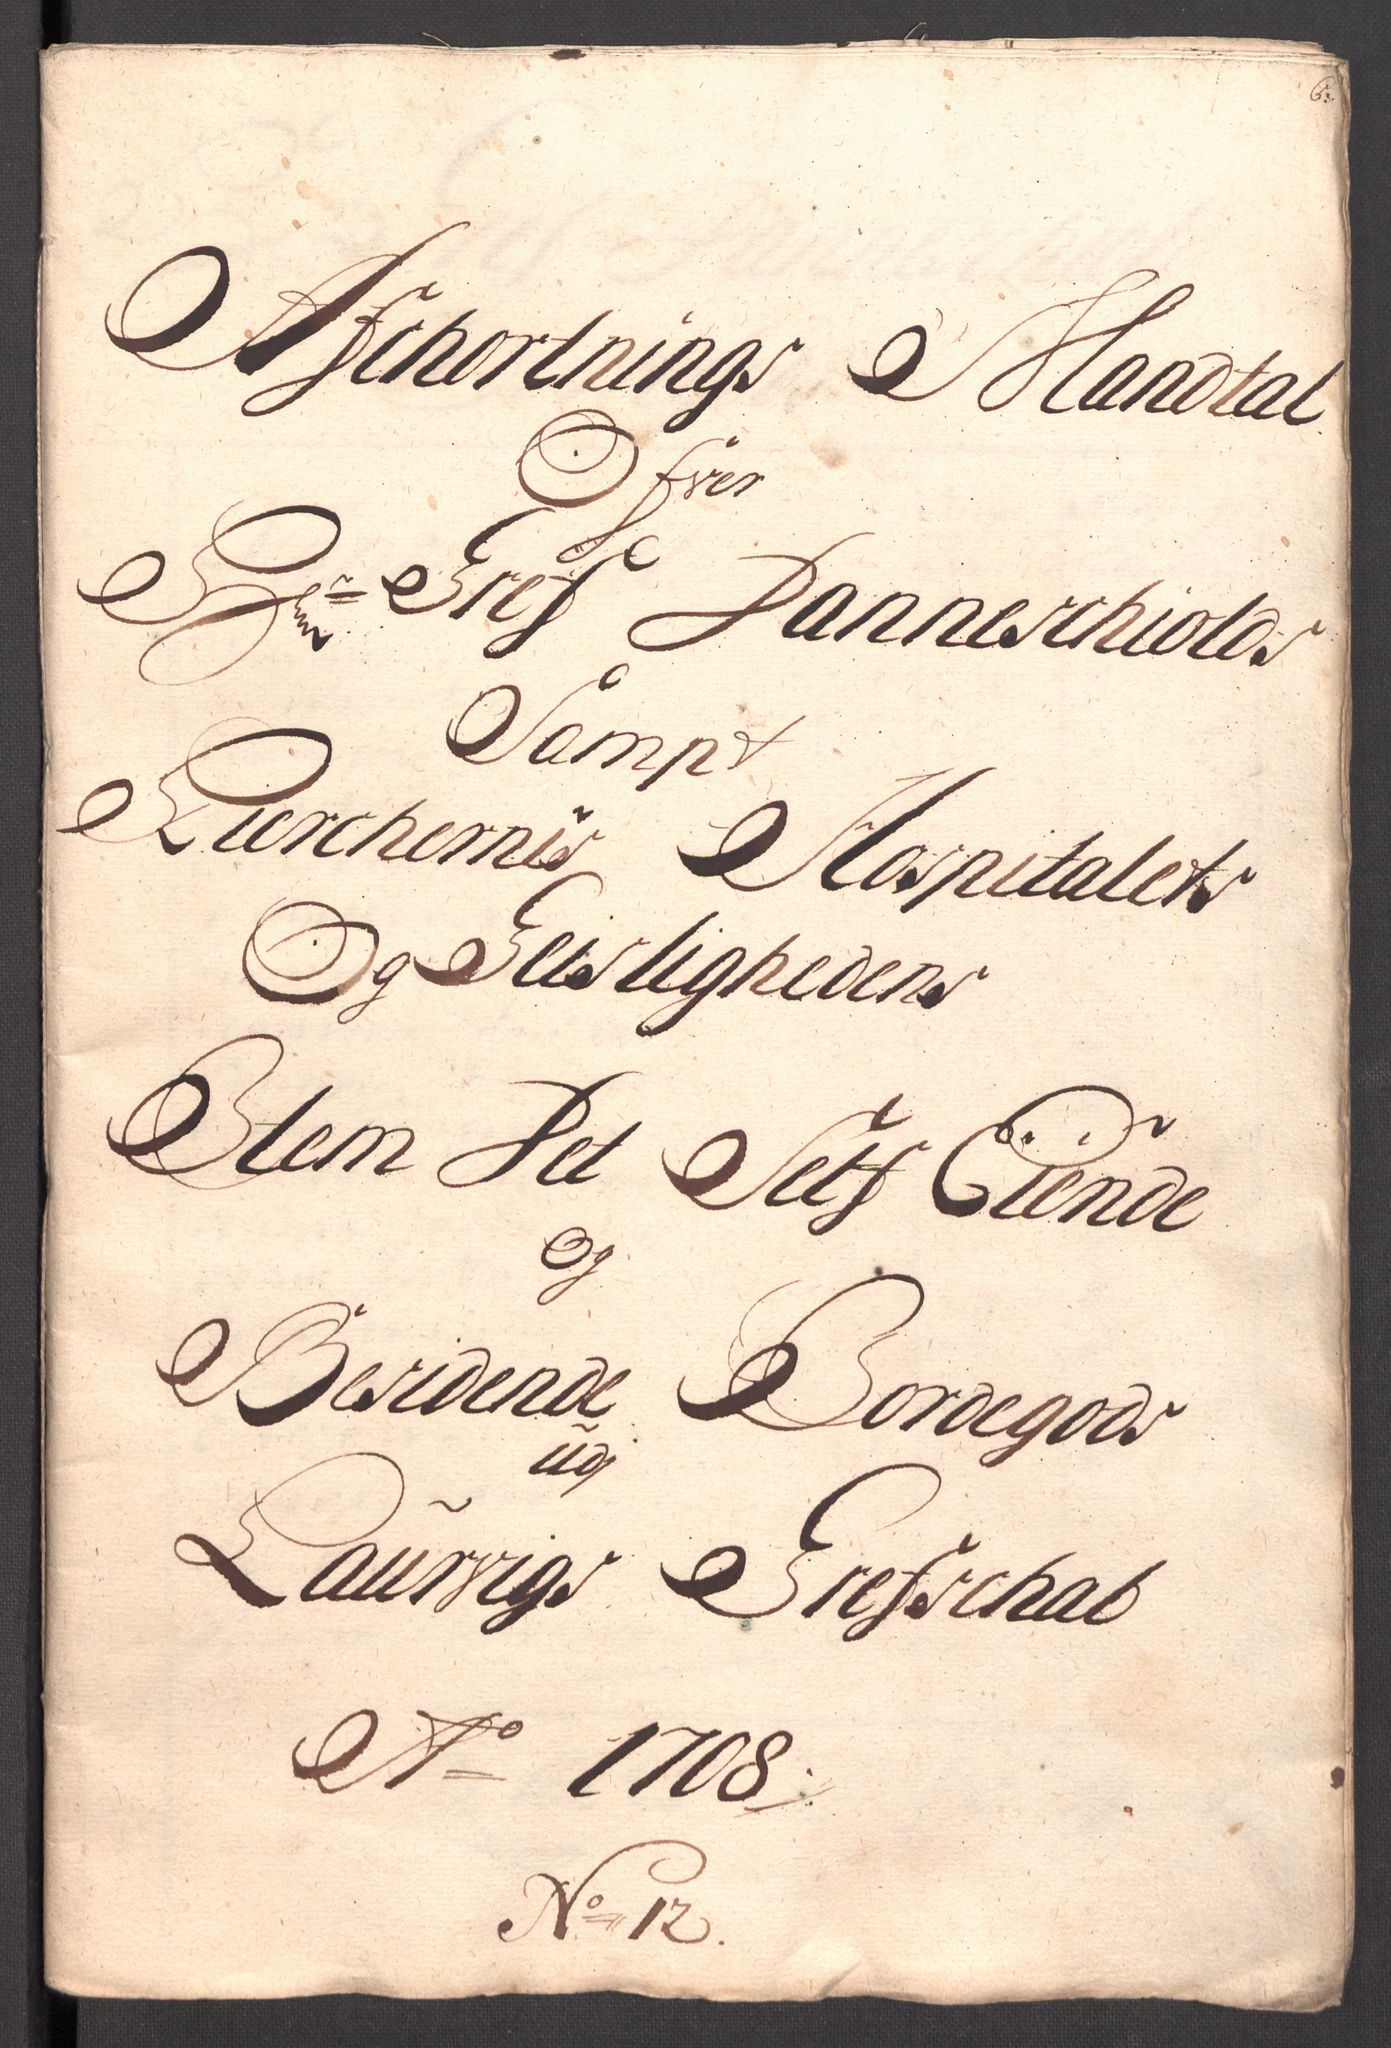 6:
Afschortnings Mandtal
Ofver
Gref Danneschiolds
Sampt
Kierchernis Hospitalets
Og Geistlighedens
Item Det Self Eiende
og
Besidende Bordegods
udj
Laurvigs Grefschab
Ao 1708
No 12.